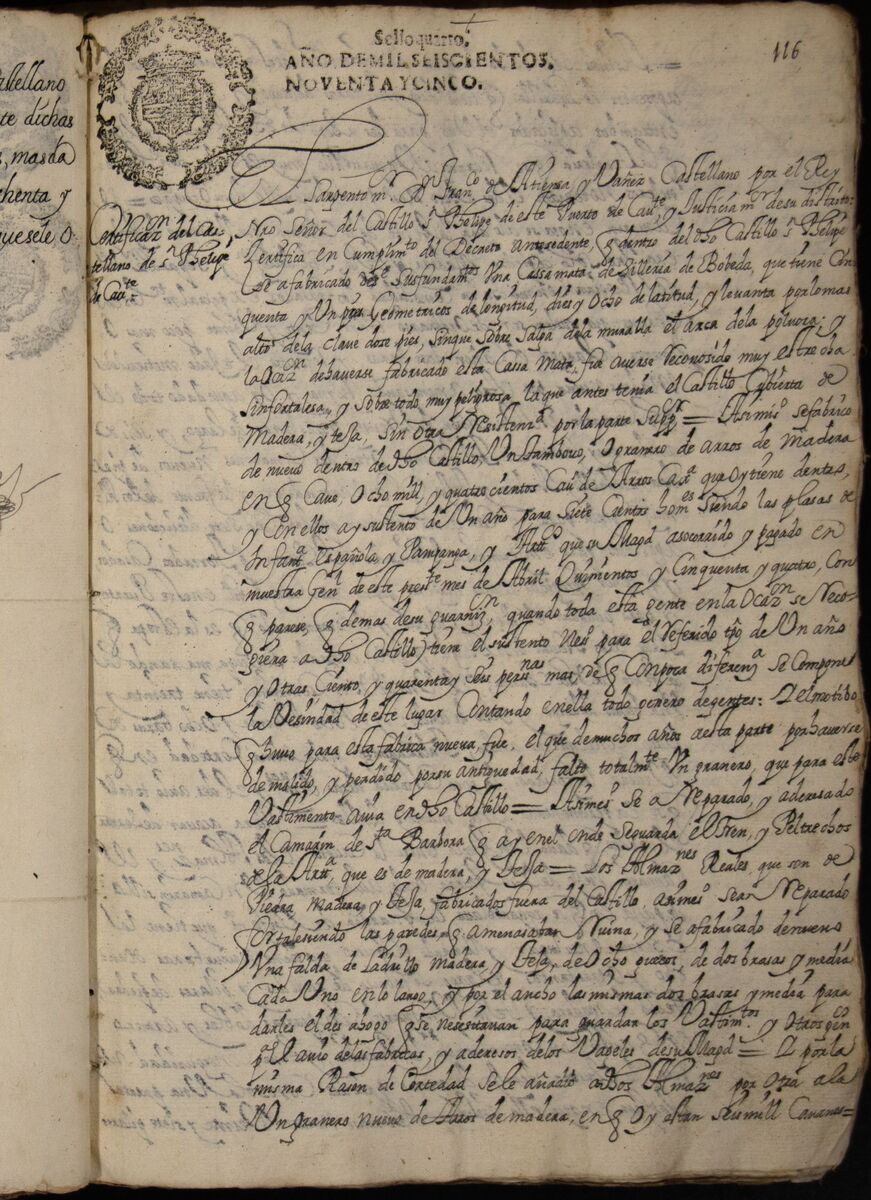 astellano
te dichas
s, mas da
chenta y
que sele o
Sello quarto.
AÑO DE MIL SEISCIENTOS,
NOVENTA Y CINCO.
116
Certificaz.on del Cas-
tellano de s.n Phelipe
de Cau.te
Sargento m.r D.n Fran.co de Atienza y Vañez Castellano por el Rey
Nro Señor del Castillo s.n Phelipe de este Puerto de Cau.te y Justicia m.or de su distrito:
Certifica en Cumplim.to del Decreto antesedente, q dentro del dho Castillo s.n Phelipe
se a fabricado desde sus fundam.tos Vna Cassamata de Silleria de Bobeda, que tiene Cin
quenta y Un pies Geometricos de longitud, dies y Ocho de latitud, y levanta por lo mas
alto de la clave dose pies, sin que sobre salga de la muralla el arca de la polvora; y
la Ocaz.on de haverse fabricado esta Cassa Mata, fue averse Reconosido muy estrecha
sin fortalesa, y sobre todo muy peligrosa la que antes tenia el Castillo Cubierta de
Madera, y teja, sin otra Resistenz.a por la parte Sup.or = Asimis.o se fabrico
de nuevo dentro de dho Castillo, Un tambovo, O granero de arros de madera
en q Cave, Ocho mill, y quatro cientos Cau.s de Arros Casc.a que oy tiene dentro,
y Con ellos ay sustento de Un año para Siete Cientos hom.es siendo las plasas de
Infant.a Española, y Pampanga, y Art.o que su Mag.d a socorrido y pagado en
muestra Gen.l de este pres.te mes de Abril Quinientos y Cinquenta y quatro, Con
q parese, q demas de su guarniz.on, quando toda esta gente en la Ocaz.on se Reco-
giera a dho Castillo, tiene el sustento Nes.o para el Referido tpo de Un año
y Otras Ciento y quarenta y Seis pers.nas mas, de q Con poca diferen.a se Compone
la Vesindad de este lugar Contando en ella todo genero de gentes: Y el motibo
q huvo para esta fabrica nueva, fue, el que de muchos años a esta parte por haverse
demolido, y perdido por su antiguedad, falto totalm.te Un granero, que para este
Vastimento avia en dho Castillo = Asimes.o se a Reparado, y aderesado
el Camarin de s.ta Barbora q ay en el en de se guarda el tren, y Peltrechos
de la Art.a, que es de madera, y Teja = Los Almaz.nes Reales, que son de
Piedra madera, y Teja, fabricados fuera del Castillo, asimes.o se an Reparado
fortalesiendo las paredes q amenasaban Ruina, y se a fabricado de nuevo
Vna falda de Ladrillo madera y Teja, de Ocho de dos brasas y media
Cada Uno en lo largo, y por el ancho las mismas dos brasas y media para
darles el desahogo q se nesesitavan para guardar los Vastim.tos y otros gen.os
p.a El avio de las fabricas, y aderesos de los Vageles de su Mag.d = Y por la
misma Rason de Cortedad se le añadio a dhos Almaz.nes por Otra ala
Un granero nuevo de Arros de madera, en q Oy estan Seis mill Cavanes=